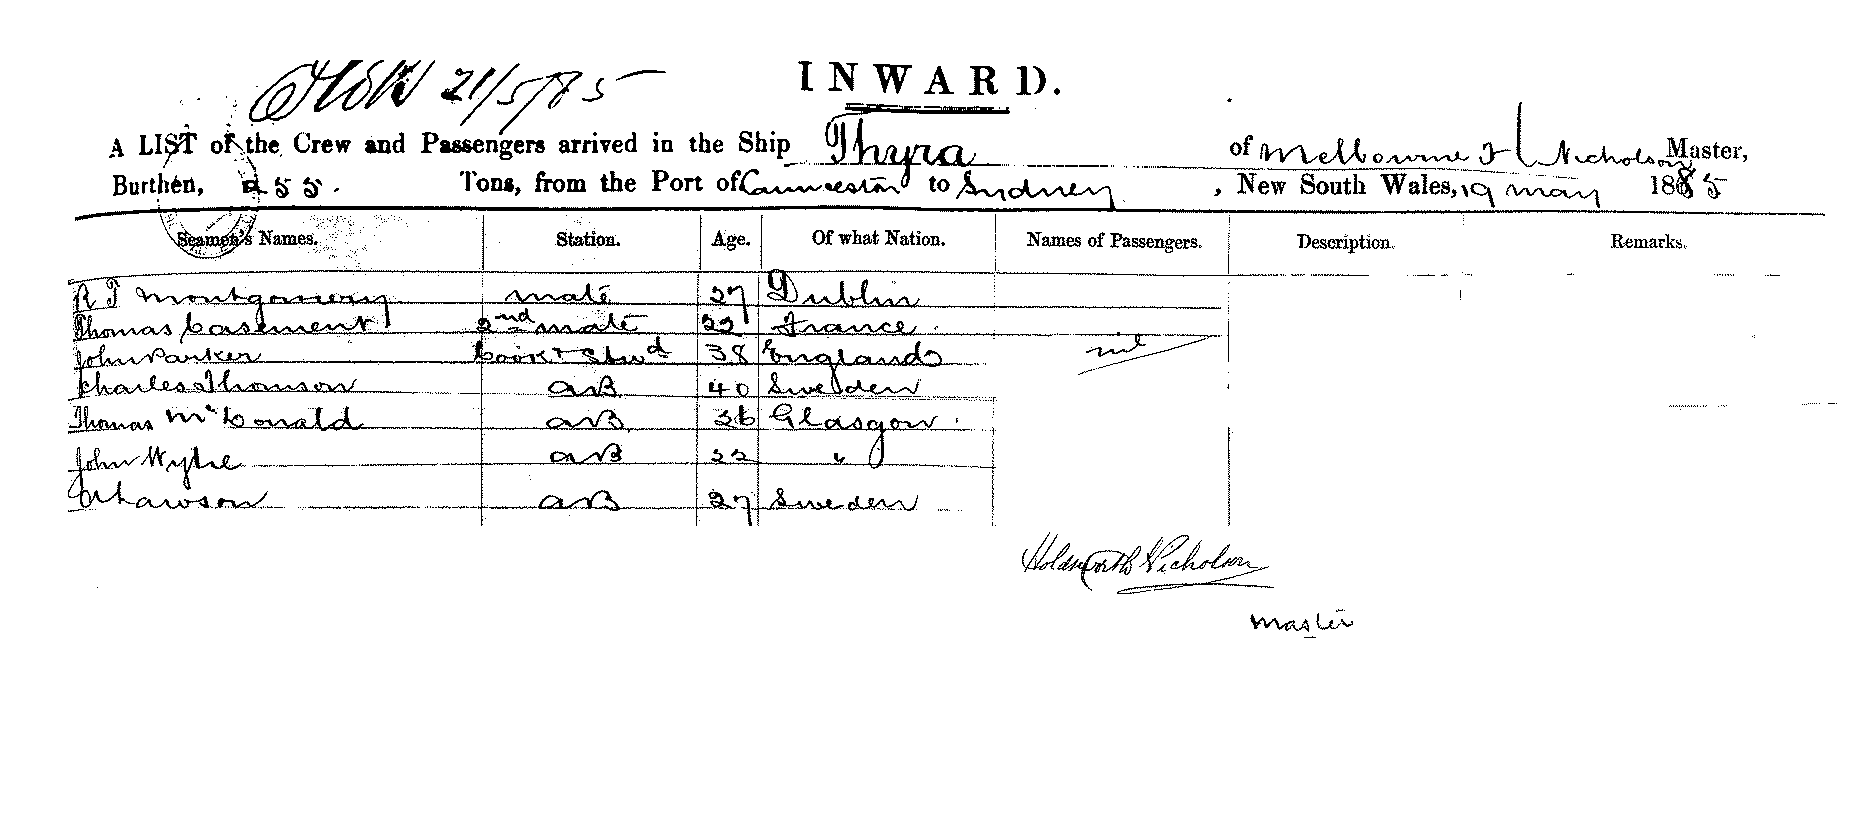 21/5/85 INWARD.
A LIST of the Crew and Passengers arrived in the Ship Thyra of Melbourne Nicholson Master,
Burthen, 255. Tons, from the Port of Launceston to Sydney, New South Wales, 19 May 1885
Seamen's Names. Station. Age. Of what Nation. Names of Passengers. Description. Remarks.
R T Montgomery mate 27 Dublin
Thomas Casement 2nd mate 22 France
John Parker Cook + Stwd 38 England nil
Charles Thomson AB 40 Sweden
Thomas McDonald AB 26 Glasgow.
John Wylie AB 22 "
Lawson AB 27 Sweden
Holdsworth Nicholson
Master